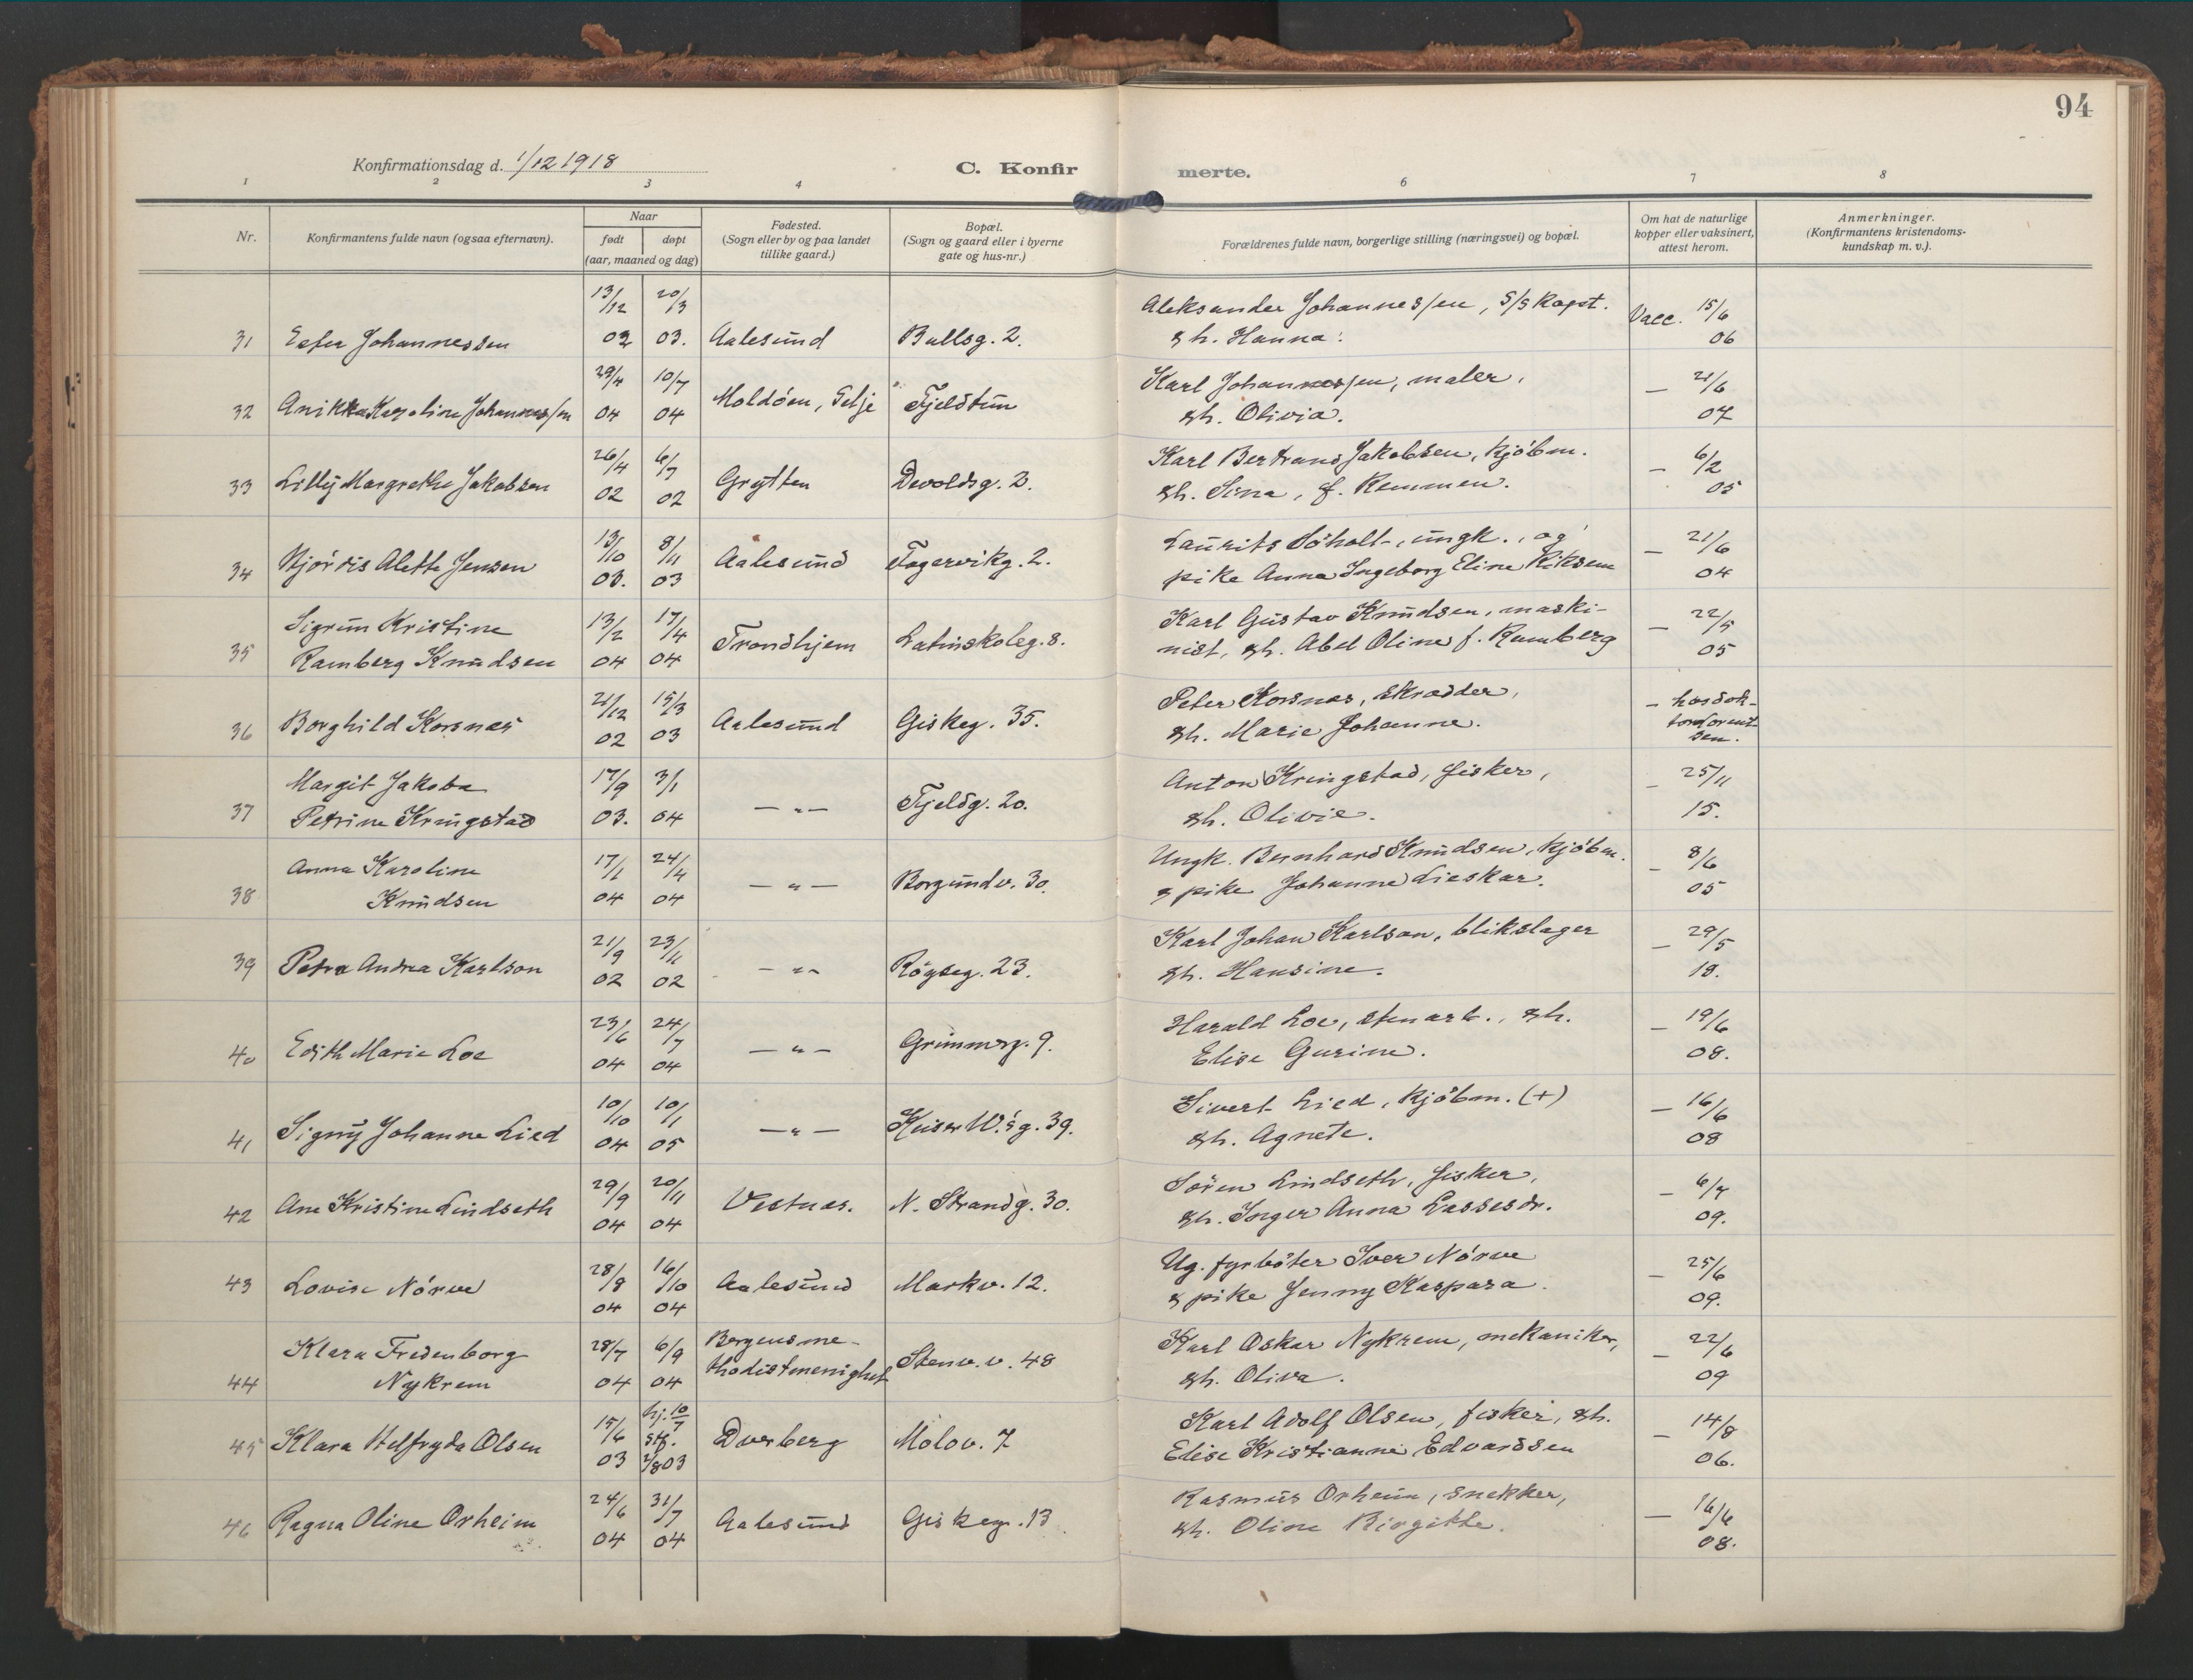 94
Konfirmationsdag d. 1/12 1918
C. Konfirmerte.
1 2 3 4 6 7 8
Nr.
Konfirmantens fulde navn (ogsaa efternavn).
Naar
født døpt
(aar, maaned og dag)
Fødested.
(Sogn eller by og paa landet
tillike gaard.)
Bopæl.
(Sogn og gaard eller i byerne
gate og hus-nr.)
Forældrenes fulde navn, borgerlige stilling (næringsvei) og bopæl.
Om hat de naturlige
kopper eller vaksinert,
attest herom.
Anmerkninger.
(Konfirmantens kristendoms-
kundskap m. v.).
13/12 20/3 Aleksander Johannessen, S/S Kapt. Vacc. 15/6
31 Johannessen 03. Aalesund Bullsg. 2. & h. Hanna. 06
29/4 10/7 Karl Johannessen, maler, — 21/6
32 Anikka Karoline Johannessen 04 04 Moldöen, Selje Fjeldtun & h. Olivia. 07
26/4 6/7 Karl Bertrand Jakobsen, kjöbm. — 6/2
33 Lilly Margrethe Jakobsen 02 02 Grytten Devoldsg. 2. & h. Sina, f. Remmen. 05
13/10 8/11 Laurits Söholt, ungk., og — 21/6
34 Hjördis Alette Jensen 03. 03 Aalesund Fagervikg. 2. pike Anna Ingeborg Eline Riksem 04
Sigrun Kristine 13/2 17/4 Karl Gustav Knudsen, maski- — 22/5
35 Ramberg Knudsen 04 04 Trondhjem Latinskoleg. 8. nist, & h. Abel Oline f. Ramberg 05
21/12 15/3 Peter Korsnes, skrædder, — hos dok-
36 Borghild Korsnes 02 03 Aalesund Giskeg. 35. & h. Marie Johanne. tor Lorent-
sen.
Margit Jakoba 17/9 3/1 Anton Kringstad, fisker, — 25/11
37 Petrine Kringstad 03. 04 — „ — Fjeldg. 20. & h. Olivie. 15.
Anna Karoline 17/1 24/4 Ungk. Bernhard Knudsen, kjöbm. — 8/6
38 Knudsen 04 04 — „ — Borgundv. 30. & pike Johanne Lieskar. 05
21/9 23/1 Karl Johan Karlson, blikslager — 29/5
39 Petra Andrea Karlson 02 02 — „ — Rögseg. 23. & h. Hansine. 18.
23/6 24/7 Harald Loe, stenarb., & h. — 19/6
40 Edith Marie Loe 04 04 — „ — Grimmerg. 9. Elise Gurine. 08.
10/10 10/1 Sivert Lied, kjöbm. (+) — 16/6
41 Signy Johanne Lied 04 05 — „ — Keiser W.'s g. 39. & h. Agnete. 08
29/9 20/11 Sören Lindseth, fisker, — 6/7
42 Ane Kristine Lindseth 04 04 Vestnes. N. Strandg. 30. & h. Inger Anna Lassesdr. 09.
28/8 16/10 Ug. fyrböter Iver Nörve — 25/6
43 Lovise Nörve 04 04 Aalesund Markv. 12. & pike Jenny Kaspara. 09.
Klara Fredenborg 28/7 6/9 Bergens me- Karl Oskar Nykrem, mekaniker, — 22/6
44 Nykrem 04 04 thodistmenighet Stenv. v. 48 & h. Oliva. 09
15/6 hj. 10/7 Karl Adolf Olsen, fisker, & h. — 14/8
45 Klara Helfryda Olsen 03 stf. 2/8 03 Dverberg Molov. 7 Elise Kristianne Edvardsen 06.
24/6 31/7 Rasmus Orheim, snekker, — 16/6
46 Ragna Oline Orheim 04 04 Aalesund Giskeg. 13 & h. Oline Birgitte. 08.